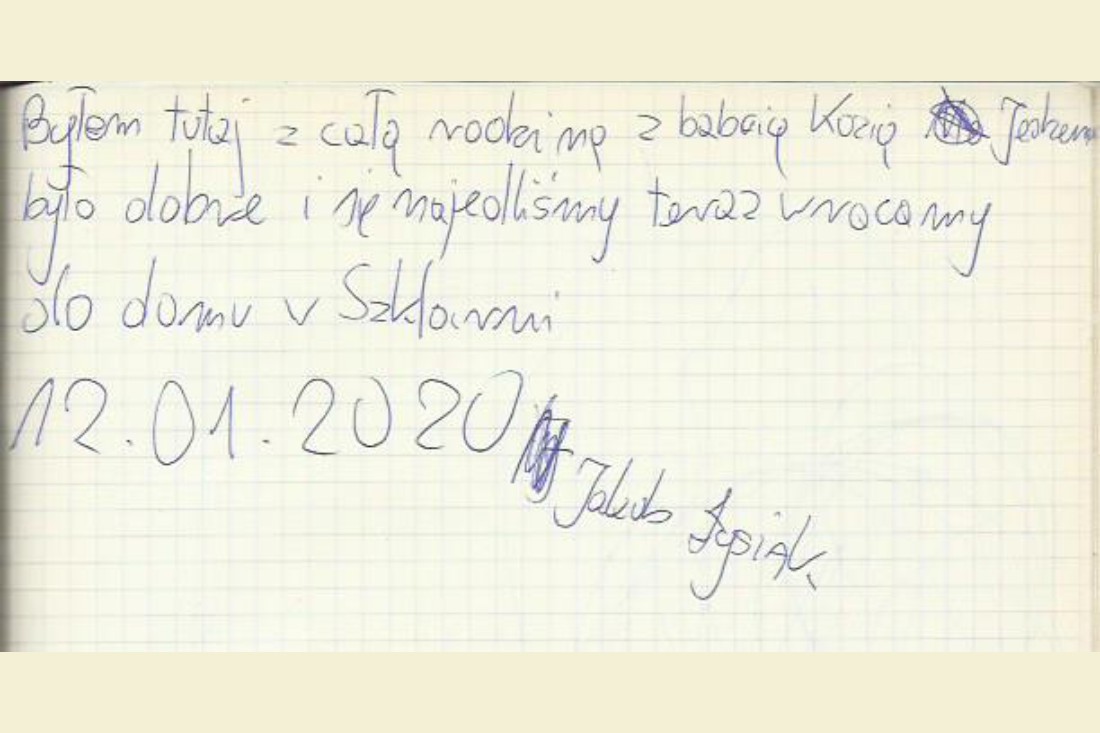 Byłem tutaj z całą rodziną z babcią Kozią
było dobrze i się najedliśmy teraz wracamy
do domu v Szklarni
12.01.2020
Jakub Łysiak